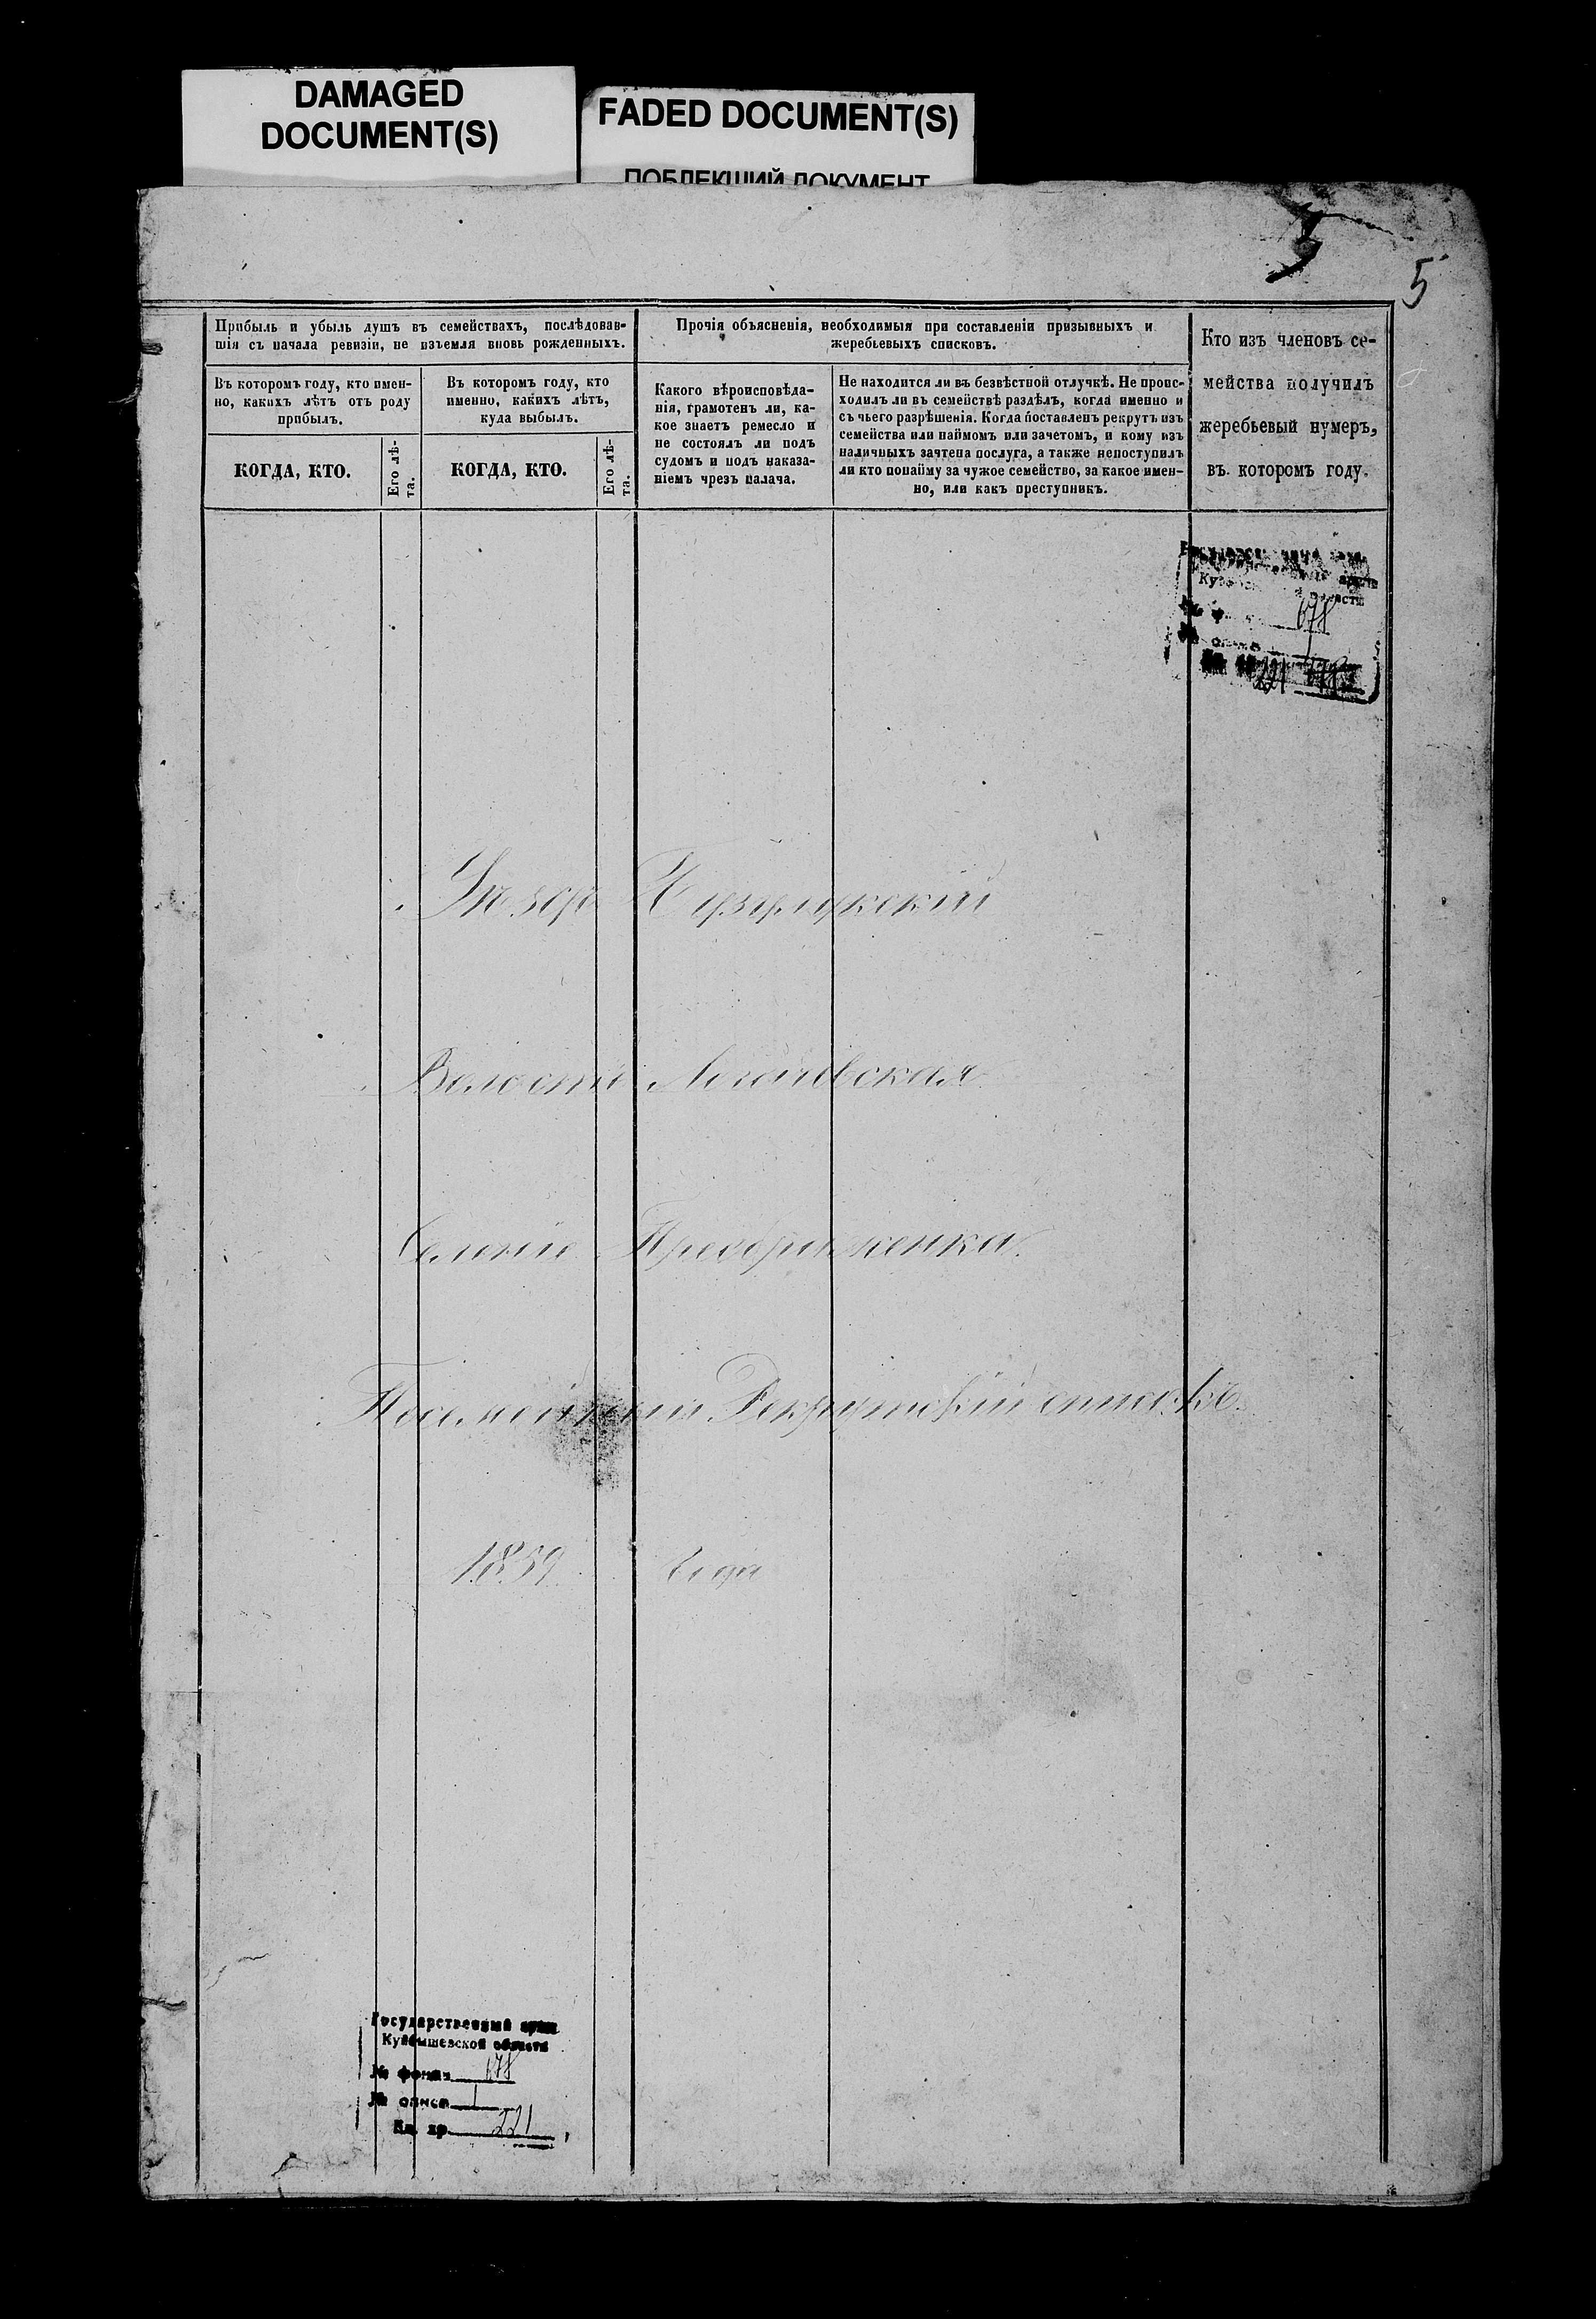 DAMAGED
DOCUMENT(S)
FADED DOCUMENT(S)
ПОБЛЕКШИЙ ДОКУМЕНТ
5
Прибыль и убыль душъ въ семействахъ, послѣдовав-
шія съ начала ревизіи, не изъемля вновь рожденныхъ.
Прочія объясненія, необходимыя при составленіи призывныхъ и
жеребьевыхъ списковъ.
Кто изъ членовъ се-
мейства получилъ
жеребьевый нумеръ,
въ которомъ году.
Въ которомъ году, кто имен-
но, какихъ лѣтъ отъ роду
прибылъ.
Въ которомъ году, кто
именно, какихъ лѣтъ,
куда выбылъ.
Какого вѣроисповѣда-
нія, грамотенъ ли, ка-
кое знаетъ ремесло и
не состоялъ ли подъ
судомъ и подъ наказа-
ніемъ чрезъ палача.
Не находится ли въ безвѣстной отлучкѣ. Не проис-
ходилъ ли въ семействѣ раздѣлъ, когда именно и
съ чьего разрѣшенія. Когда поставленъ рекрутъ изъ
семейства или наймомъ или зачетомъ, и кому изъ
наличныхъ зачтена послуга, а также непоступилъ
ли кто понайму за чужое семейство, за какое имен-
но, или какъ преступникъ.
КОГДА, КТО.
Его лѣ-
та.
КОГДА, КТО.
Его лѣ-
та.
678
1
221
Уѣздъ Бузулукскій
Волость
Селеніе Преображенка.
Посемейный Рекрутскій списокъ.
1859 года
Государственный архив
Куйбышевской области
№ фонда 678
№ описи 1
Ед. хр. 221